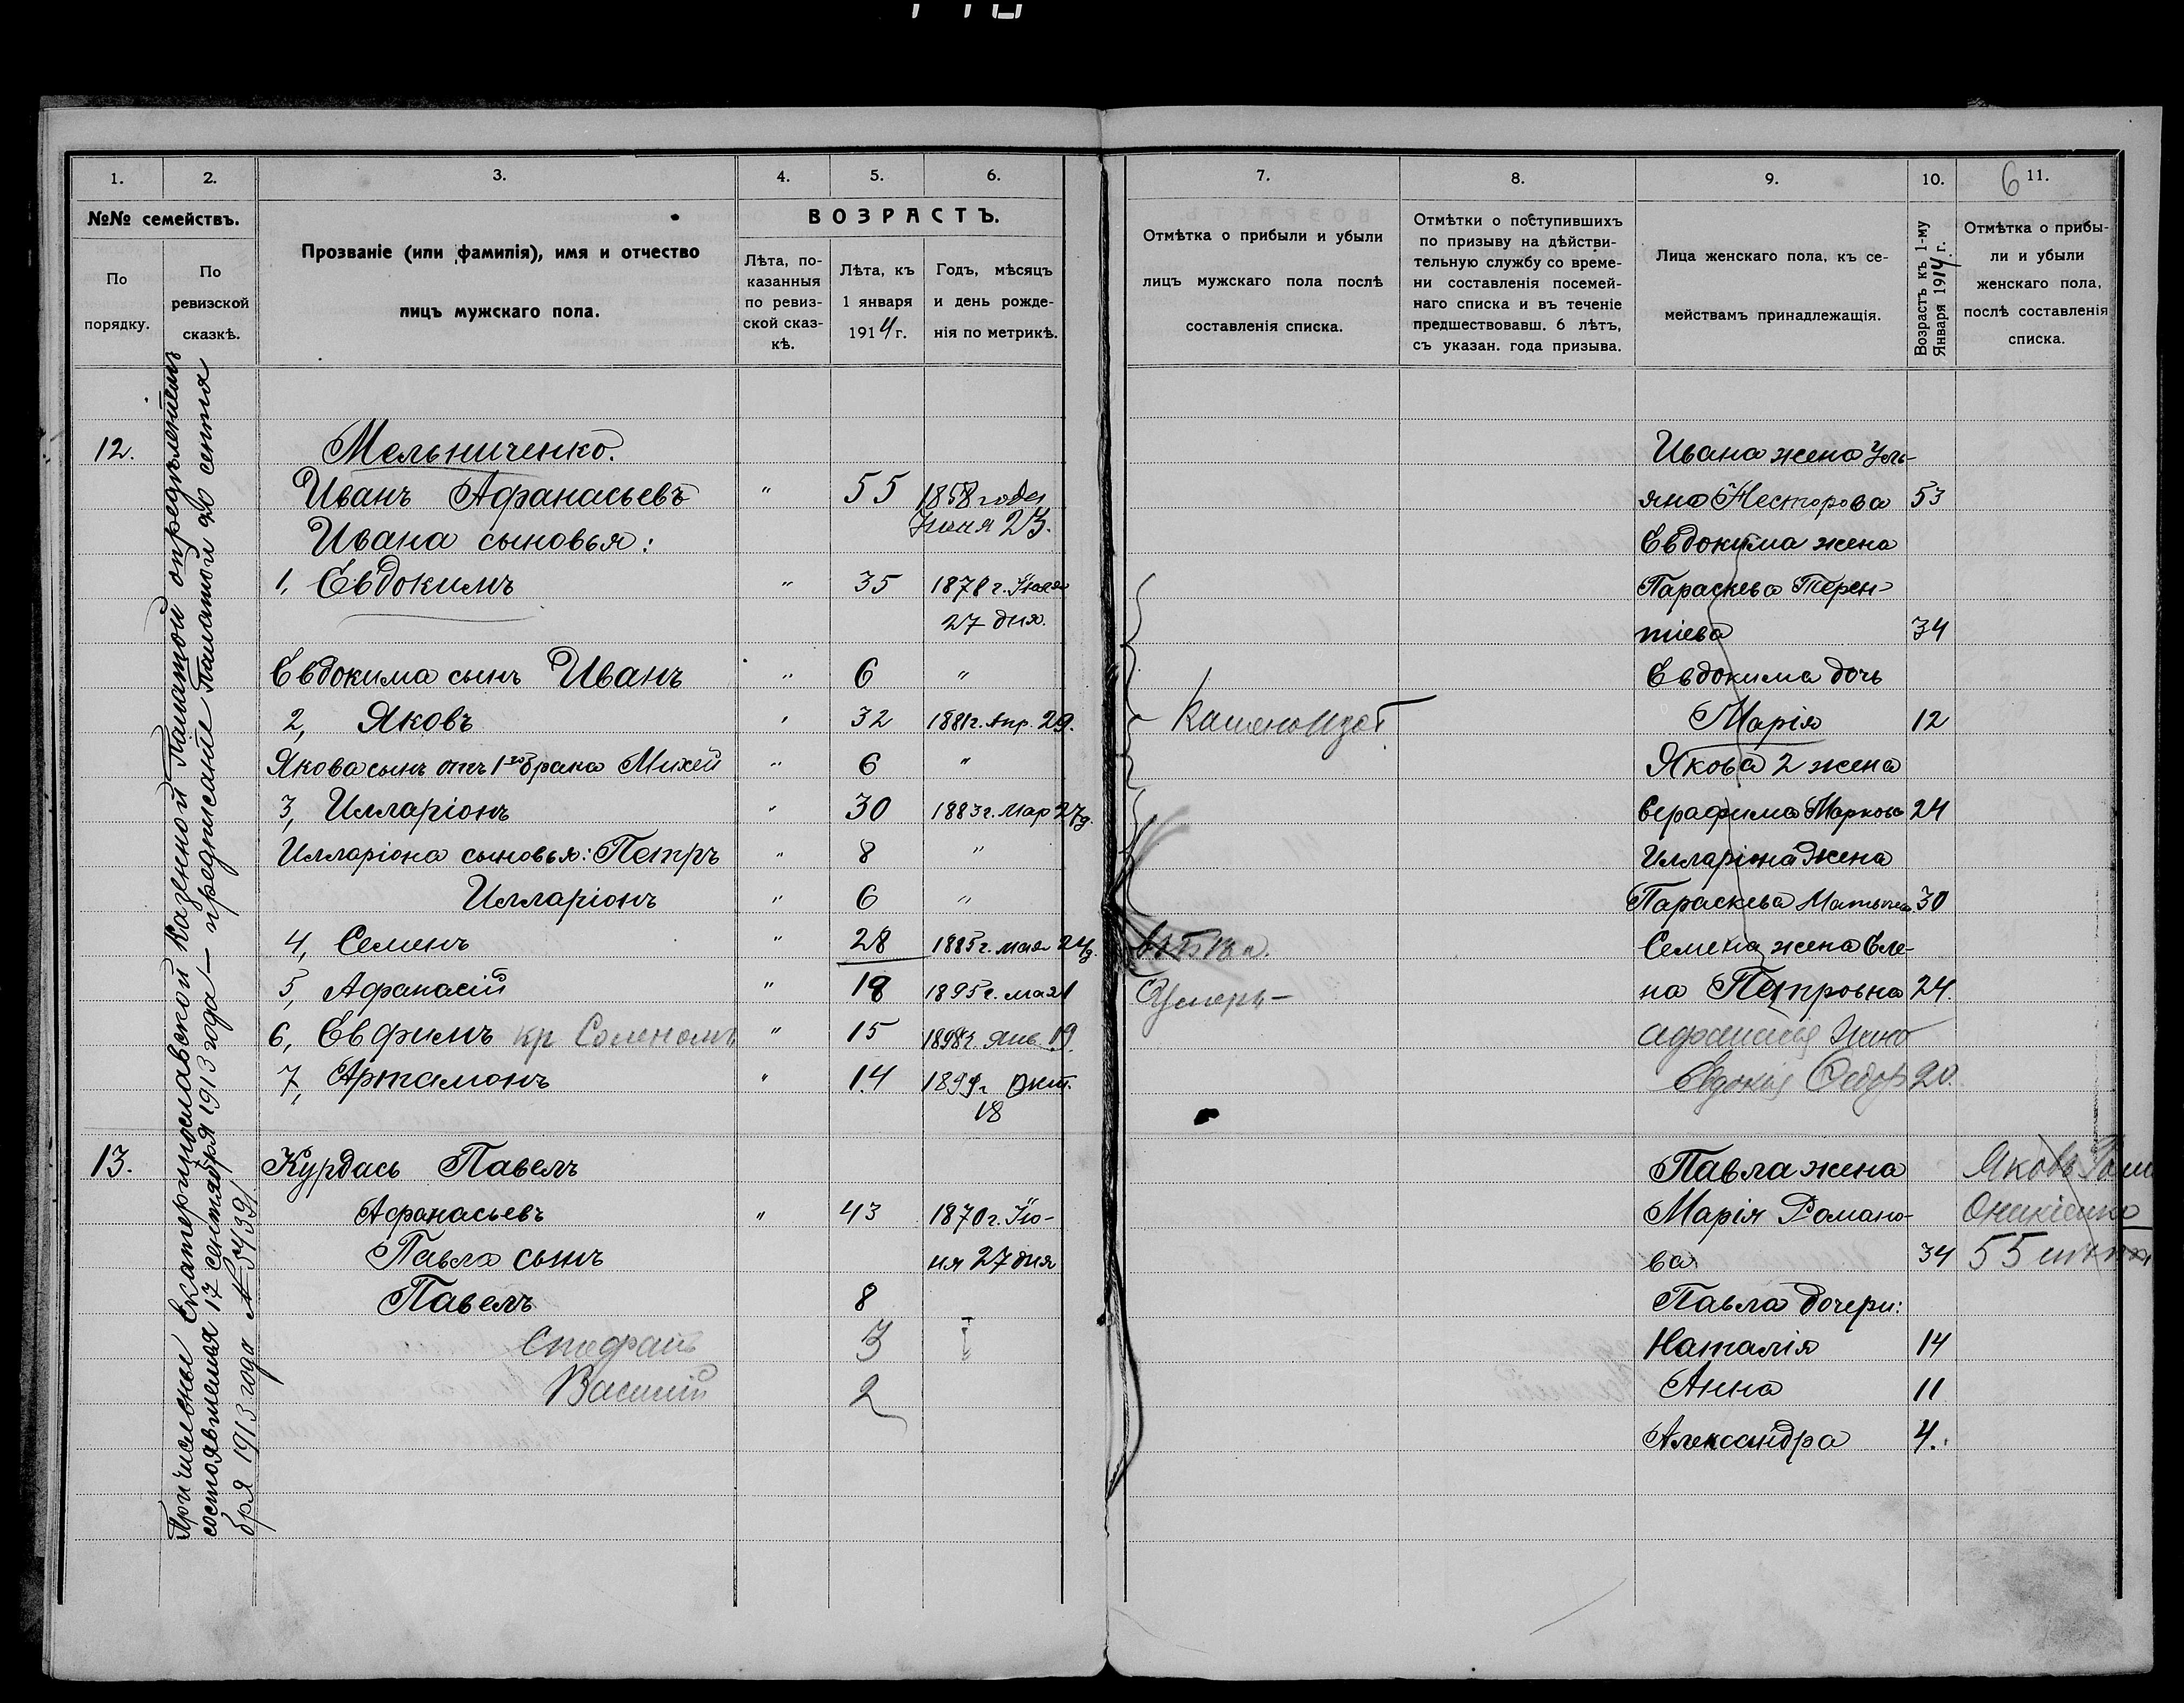 1.
2.
3.
4.
5.
6.
№№ семействъ.
По порядку.
По ревизской сказкѣ.
Прозваніе (или фамилія), имя и отчество
лицъ мужскаго пола.
ВОЗРАСТЪ.
Лѣта, по-
казанныя
по ревиз-
ской сказ-
кѣ.
Лѣта, къ
1 января
1914 г.
Годъ, мѣсяцъ
и день рожде-
нія по метрикѣ.
Причислены Екатеринославской Казенной Палатой опредѣленіемъ
состоявшемся 17 сентября 1913 года — предписаніе Палаты 20 сентя
бря 1913 года № 57439
12.
Мельниченко.
Иванъ Афанасьевъ " 55 1858 года
Іюня 23.
Ивана сыновья:
1, Евдокимъ " 35 1878 г. Іюля
27 дня.
Евдокима сынъ Иванъ " 6 "
2, Яковъ " 32 1881 г. Апр. 29.
Якова сынъ отъ 1го брака Михей " 6 "
3, Илларіонъ " 30 1883 г. Мар 27 д.
Илларіона сыновья: Петръ " 8 "
Илларіонъ " 6 "
4, Семенъ " 28 1885 г. мая 24 д.
5, Афанасій " 18 1895 г. мая 1
6, Евфимъ кр " 15 1898 г. Янв. 19.
7, Артамонъ " 14 1899 г. Окт.
18
13. Курдась Павелъ
Афанасьевъ " 43 1870 г. Ію-
ня 27 дня
Павла сынъ
Павелъ 8
Стефанъ 3
Василій 2
7.
8.
9.
10.
6
11.
Отмѣтка о прибыли и убыли
лицъ мужского пола послѣ
составленія списка.
Отмѣтки о поступившихъ
по призыву на дѣйстви-
тельную службу со време-
ни составленія посемей-
наго списка и въ теченіе
предшествовавш. 6 лѣтъ,
съ указан. года призыва.
Лица женскаго пола, къ се-
мействамъ принадлежащія.
Возрастъ къ 1-му
Января 1914 г.
Отмѣтка о прибы-
ли и убыли
женскаго пола,
послѣ составленія
списка.
Ивана жена Уль-
яна Несторова 53
Евдокима жена
Параскева Терен-
тіева 34
Евдокима дочь
Марія 12
Якова 2 жена
Серафима Маркова 24
Илларіона жена
Параскева 30
Семена жена Еле-
на Петровна 24.
Умеръ —
Евдокія Федор 20.
Павла жена
Марія Романо-
вая 34
Яковъ
55
Павла дочери:
Наталія 14
Анна 11
Александра 4.